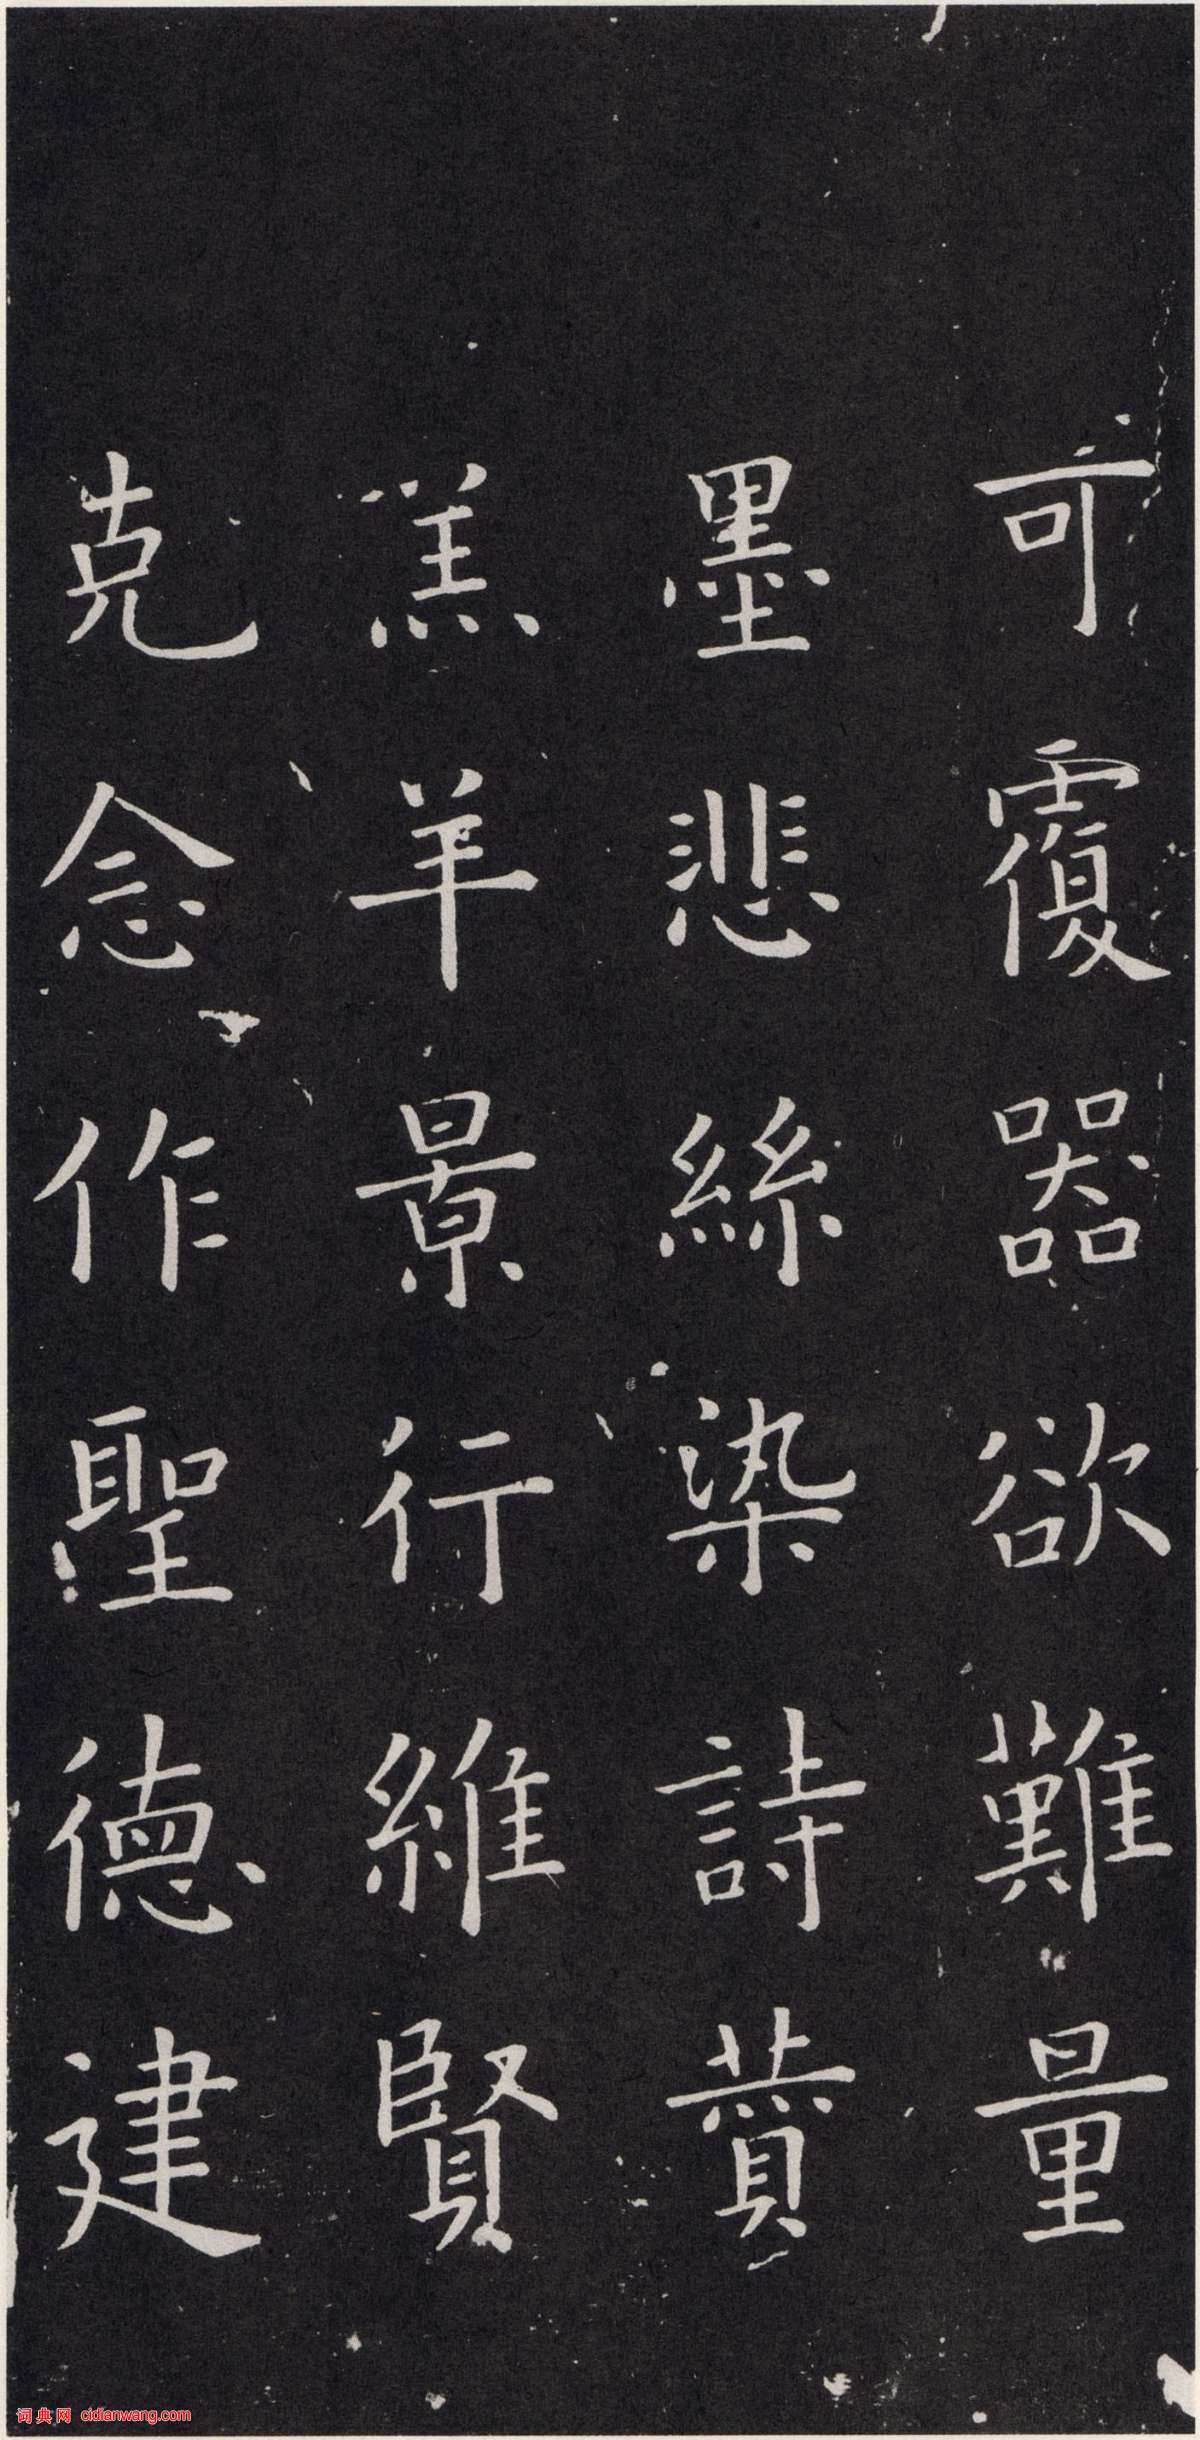 可覆器欲難量
墨悲絲染詩讚
羔羊景行維賢
克念作聖德建
词典网 cidianwang.com